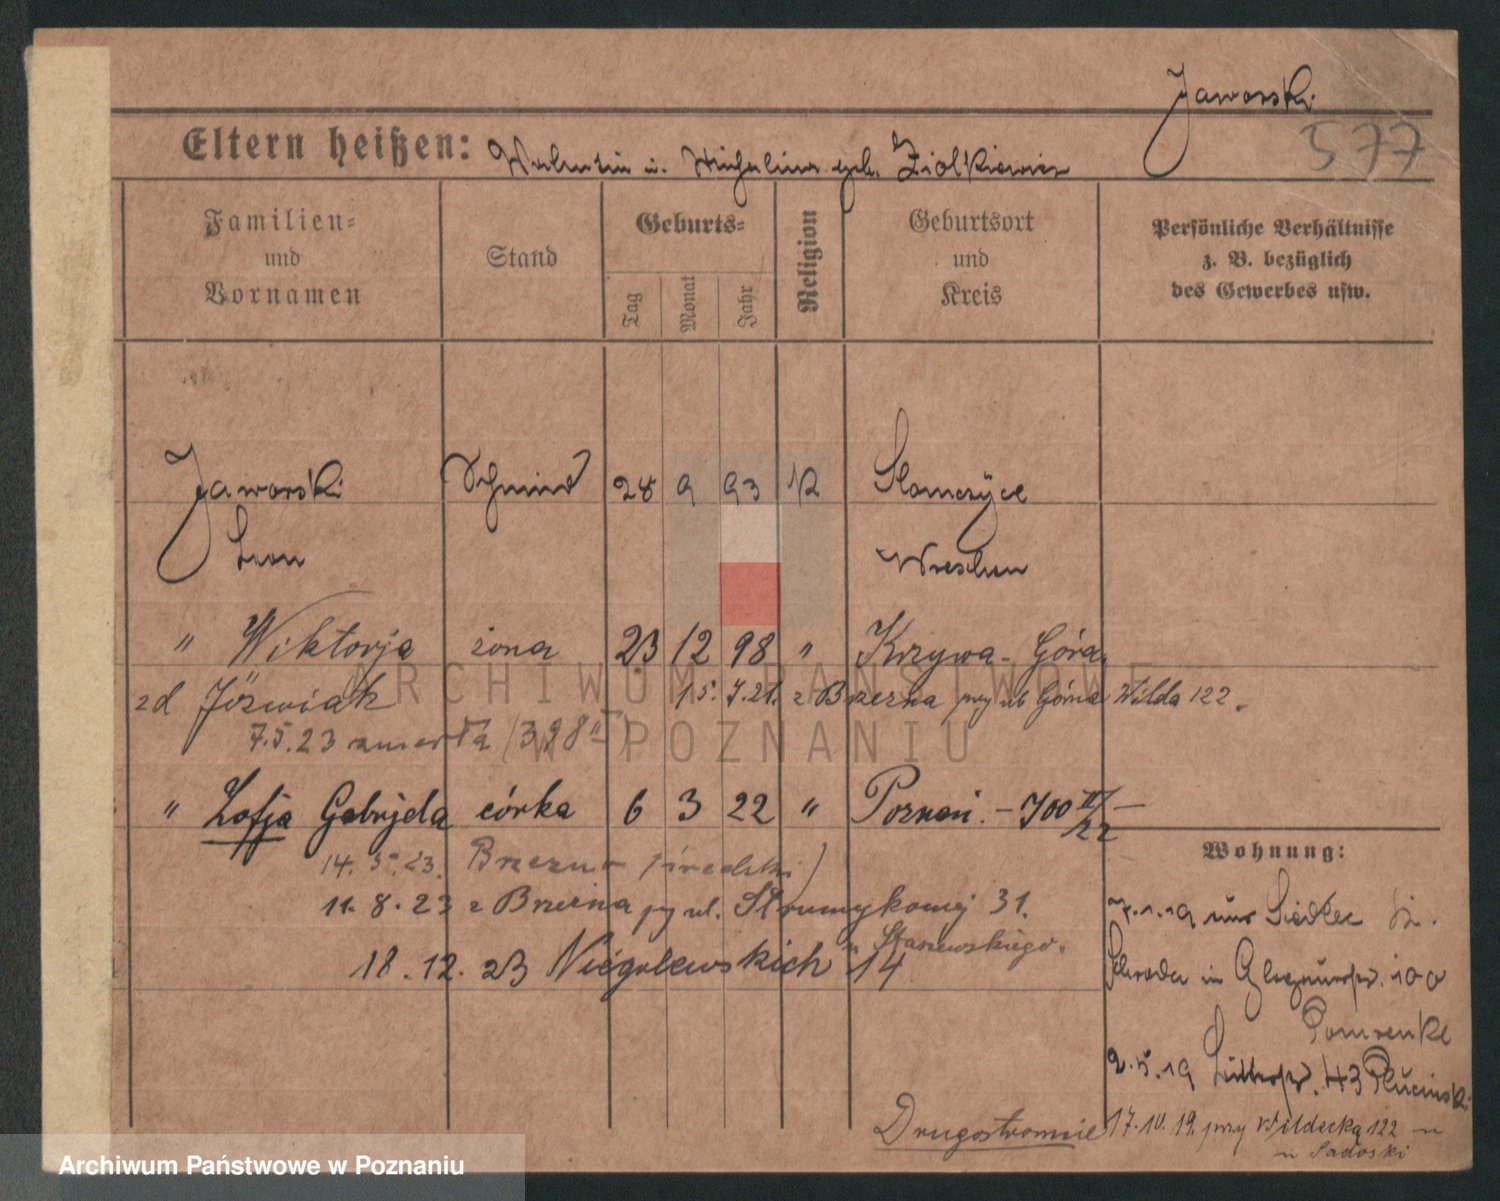 Jaworski
577
Eltern heißen: Walentin u. Michalina geb. Ziolkiewicz
Familien= und Vornamen
Stand
Geburts=
Tag
Monat
Jahr
Religion
Geburtsort und Kreis
Persönliche Verhältnisse
z. B. bezüglich
des Gewerbes usw.
Jaworski Schmied 28 9 93 K
Leon Wreschen
" Wiktorja żona 23 12 98 " Krzywa-Góra
zd Jóźwiak 15. 7. 21. z Brzezna przy ul Górna Wilda 122.
7.5.23 zmarła
" Zofja Gabryela córka 6 3 22 " Poznań. - 700 II/22 —
14. 5. 23.
11. 8. 23 z Brzezna py ul. Strumykowej 31.
" Staszewskiego.
18. 12. 23 Niegolewskich 14
Wohnung:
7. 1. 19 aus Siedlec Kr.
Schroda in 100
Pomrenke
2. 5. 19 43 Pluciński
Drugostronnie
17. 10. 19. przy Wildecką 122
Sadoski
ARCHIWUM PAŃSTWOWE
W POZNANIU
Archiwum Państwowe w Poznaniu